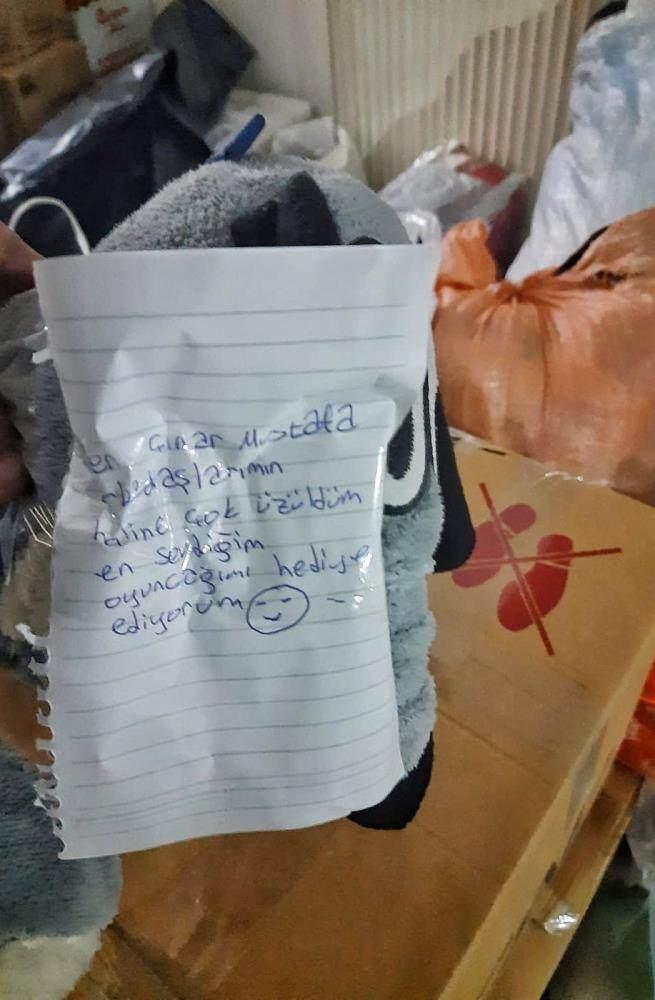 en Çınar Mustafa
arkadaşlarımın
haline çok üzüldüm
en sevdiğim
oyuncağımı hediye
ediyorum